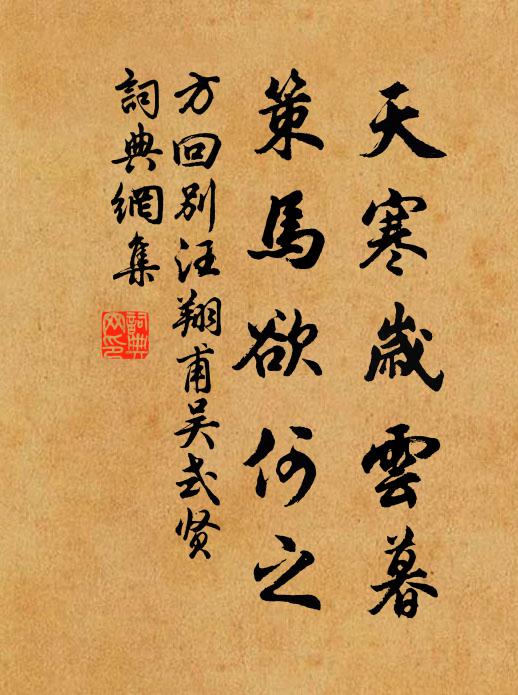 天寒歲雲暮
策馬欲何之
方回別汪翔甫吴式贤
詞典網集
詞典网印